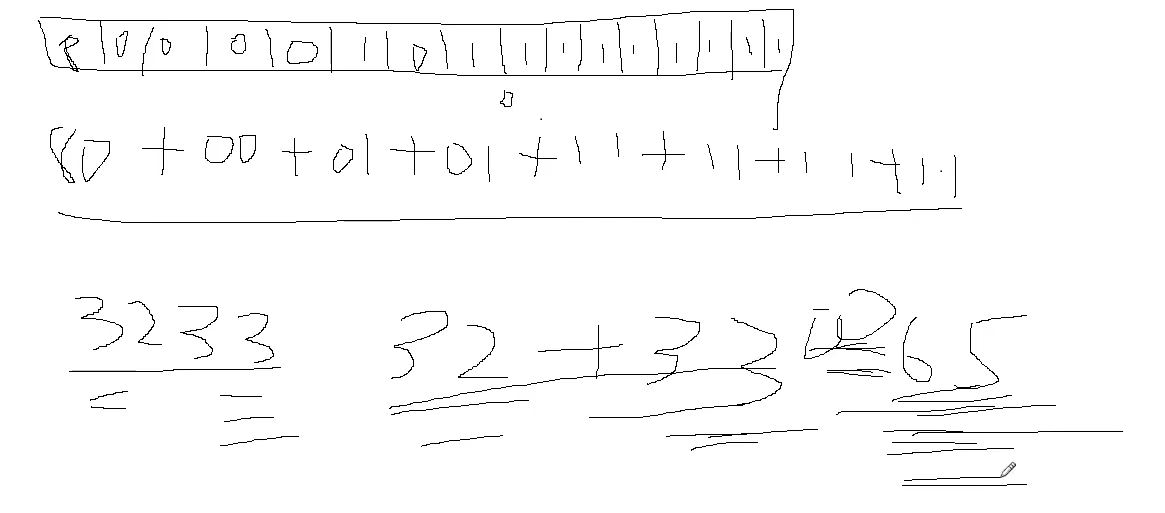 8 0 0 0 0 1 0 1 1 1 1 1 1 1 1 1
0
80 + 00 + 01 + 01 + 11 + 11 + 11 + 11
3233 32 + 33 65